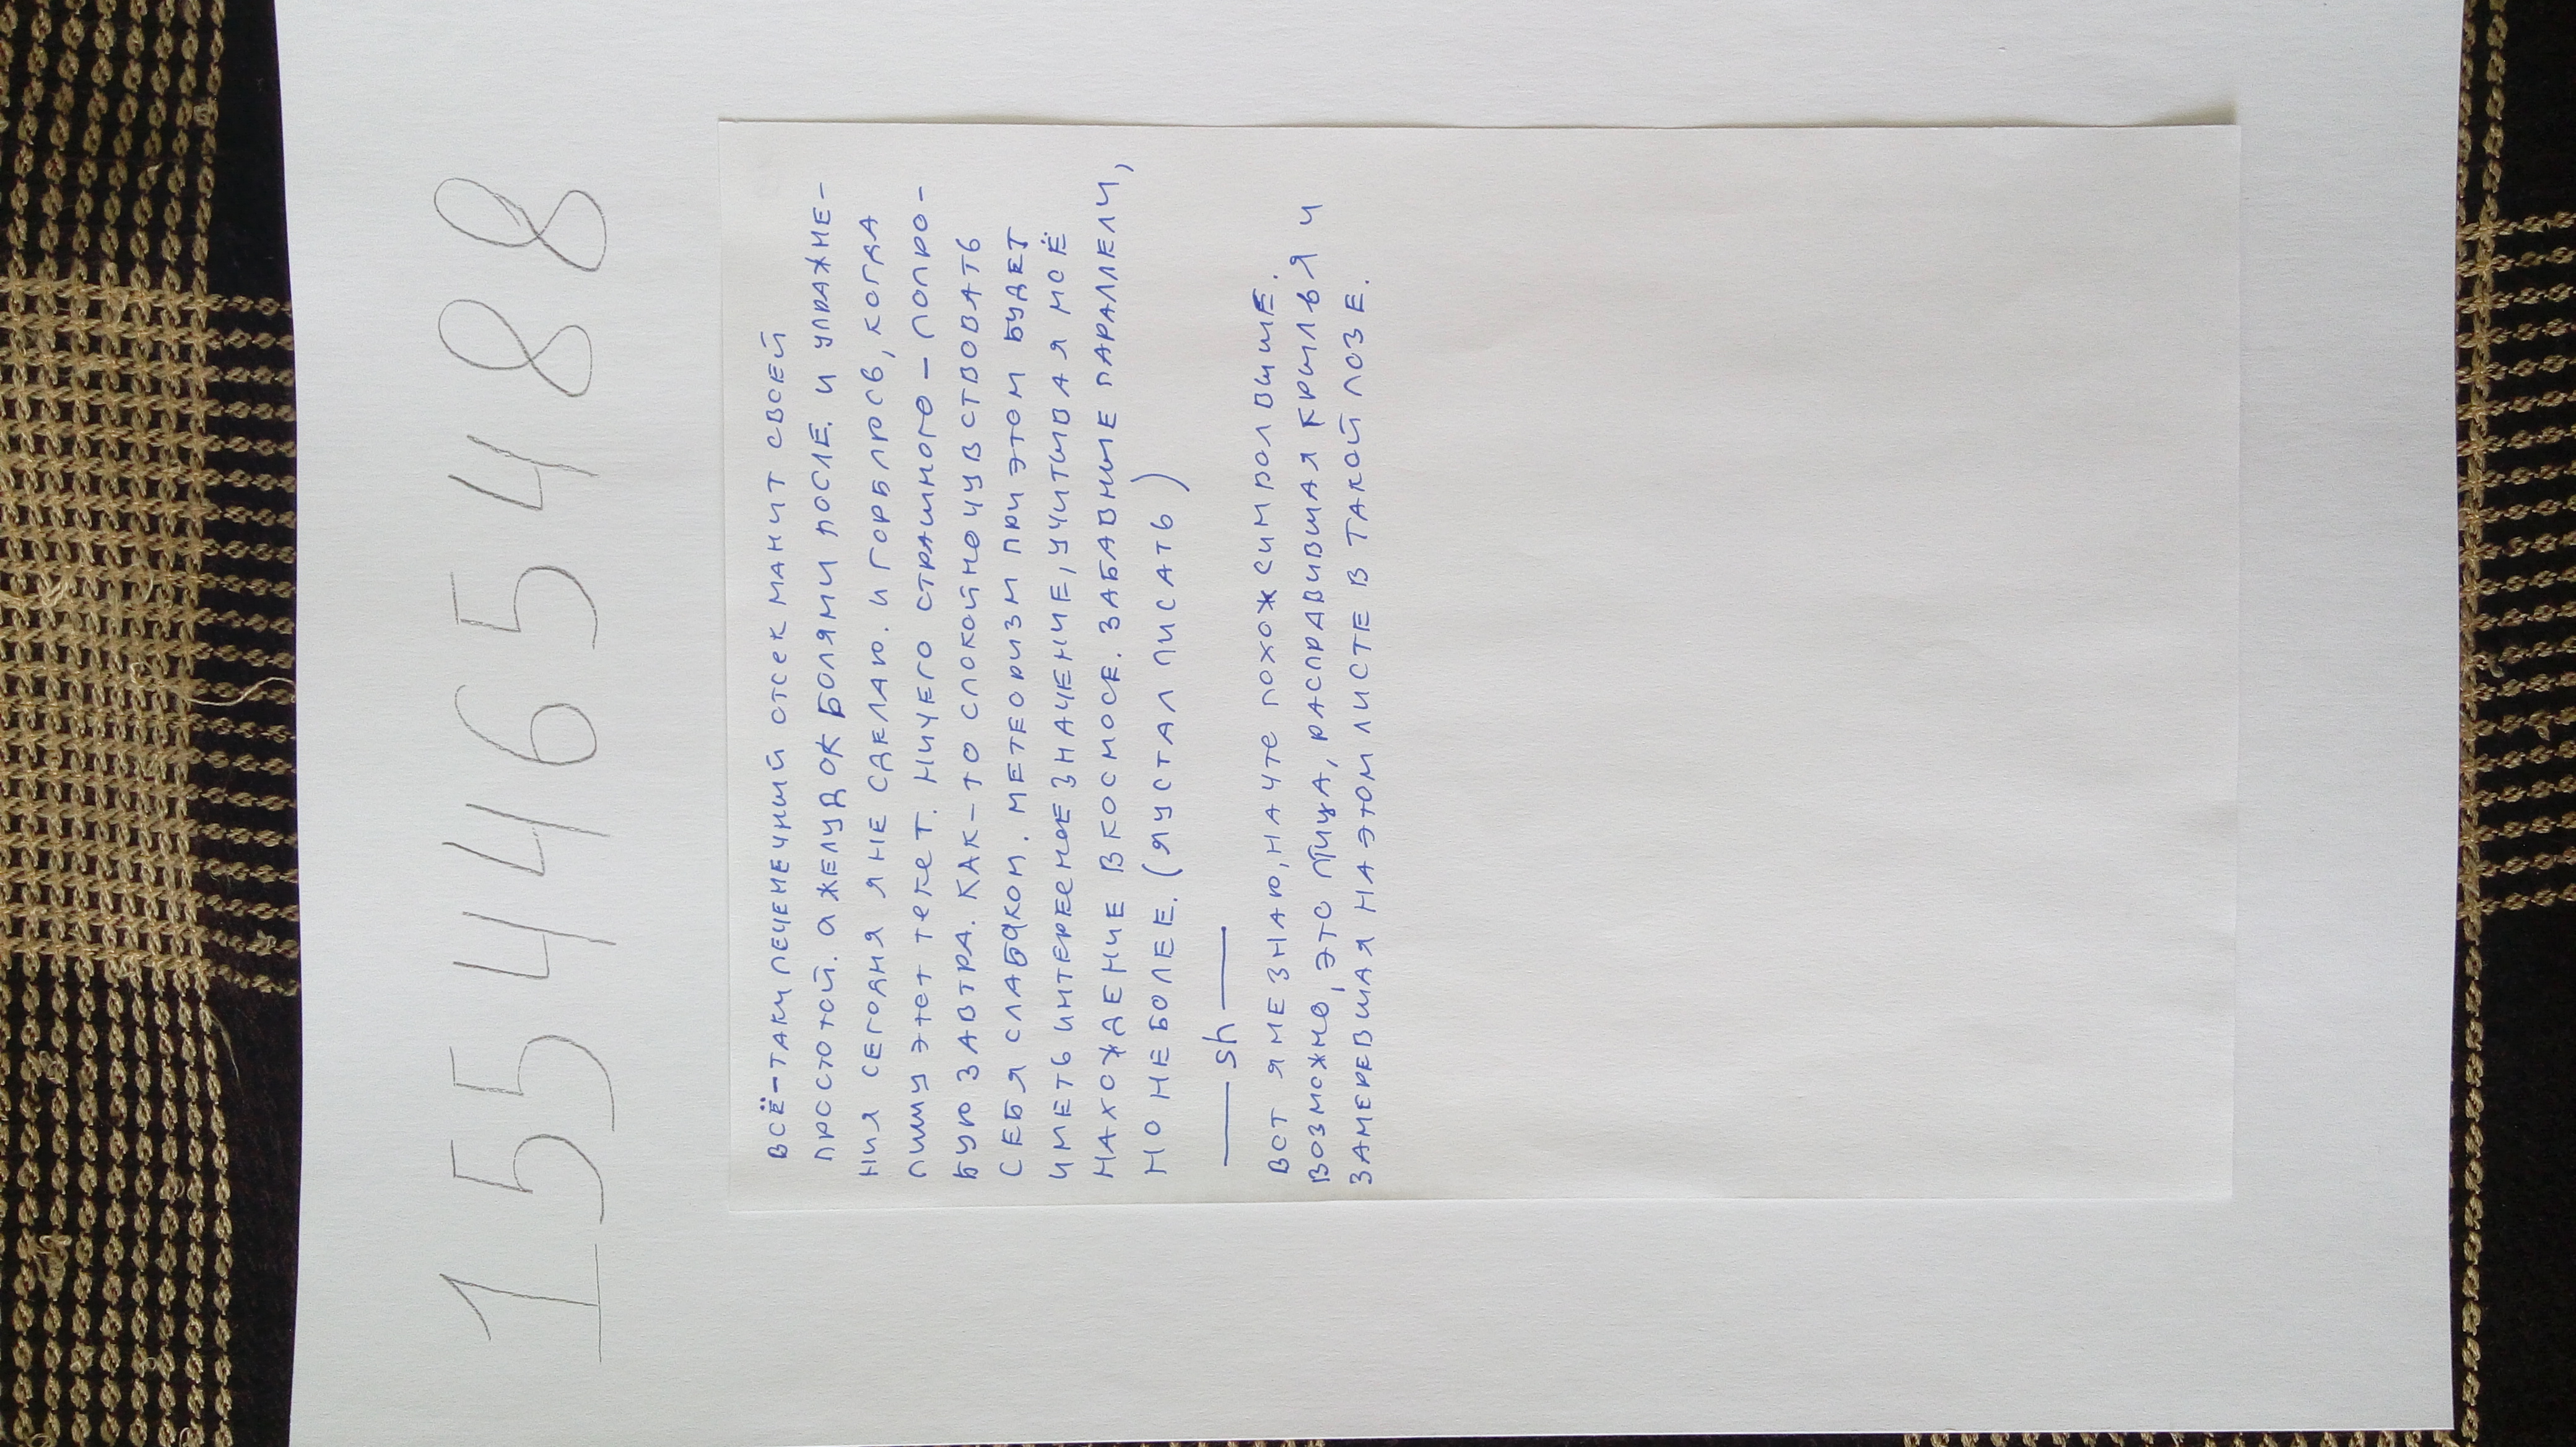 15546548 8
ВСЁ-ТАКИ ПЕЧЕНЕЧНЫЙ ОТСЕК МАНИТ СВОЕЙ
ПРОСТОТОЙ. А ЖЕЛУДОК БОЛЯМИ ПОСЛЕ. И УПРАЖНЕ-
НИЯ СЕГОДНЯ Я НЕ СДЕЛАЮ. И ГОРБЛЮСЬ, КОГДА
ПИШУ ЭТОТ ТЕКСТ. НИЧЕГО СТРАШНОГО - ПОПРО-
БУЮ ЗАВТРА. КАК-ТО СПОКОЙНО ЧУВСТВОВАТЬ
СЕБЯ СЛАБАКОМ. МЕТЕОРИЗМ ПРИ ЭТОМ БУДЕТ
ИМЕТЬ ИНТЕРЕСНОЕ ЗНАЧЕНИЕ, УЧИТЫВАЯ МОЁ
НАХОЖДЕНИЕ В КОСМОСЕ. ЗАБАВНЫЕ ПАРАЛЛЕЛИ,
НО НЕ БОЛЕЕ. (Я УСТАЛ ПИСАТЬ)
—— sh ——
ВОТ Я НЕ ЗНАЮ, НА ЧТО ПОХОЖ СИМВОЛ ВЫШЕ.
ВОЗМОЖНО, ЭТО ПТИЦА, РАСПРАВИВШАЯ КРЫЛЬЯ И
ЗАМЕРЕВШАЯ НА ЭТОМ ЛИСТЕ В ТАКОЙ ПОЗЕ.